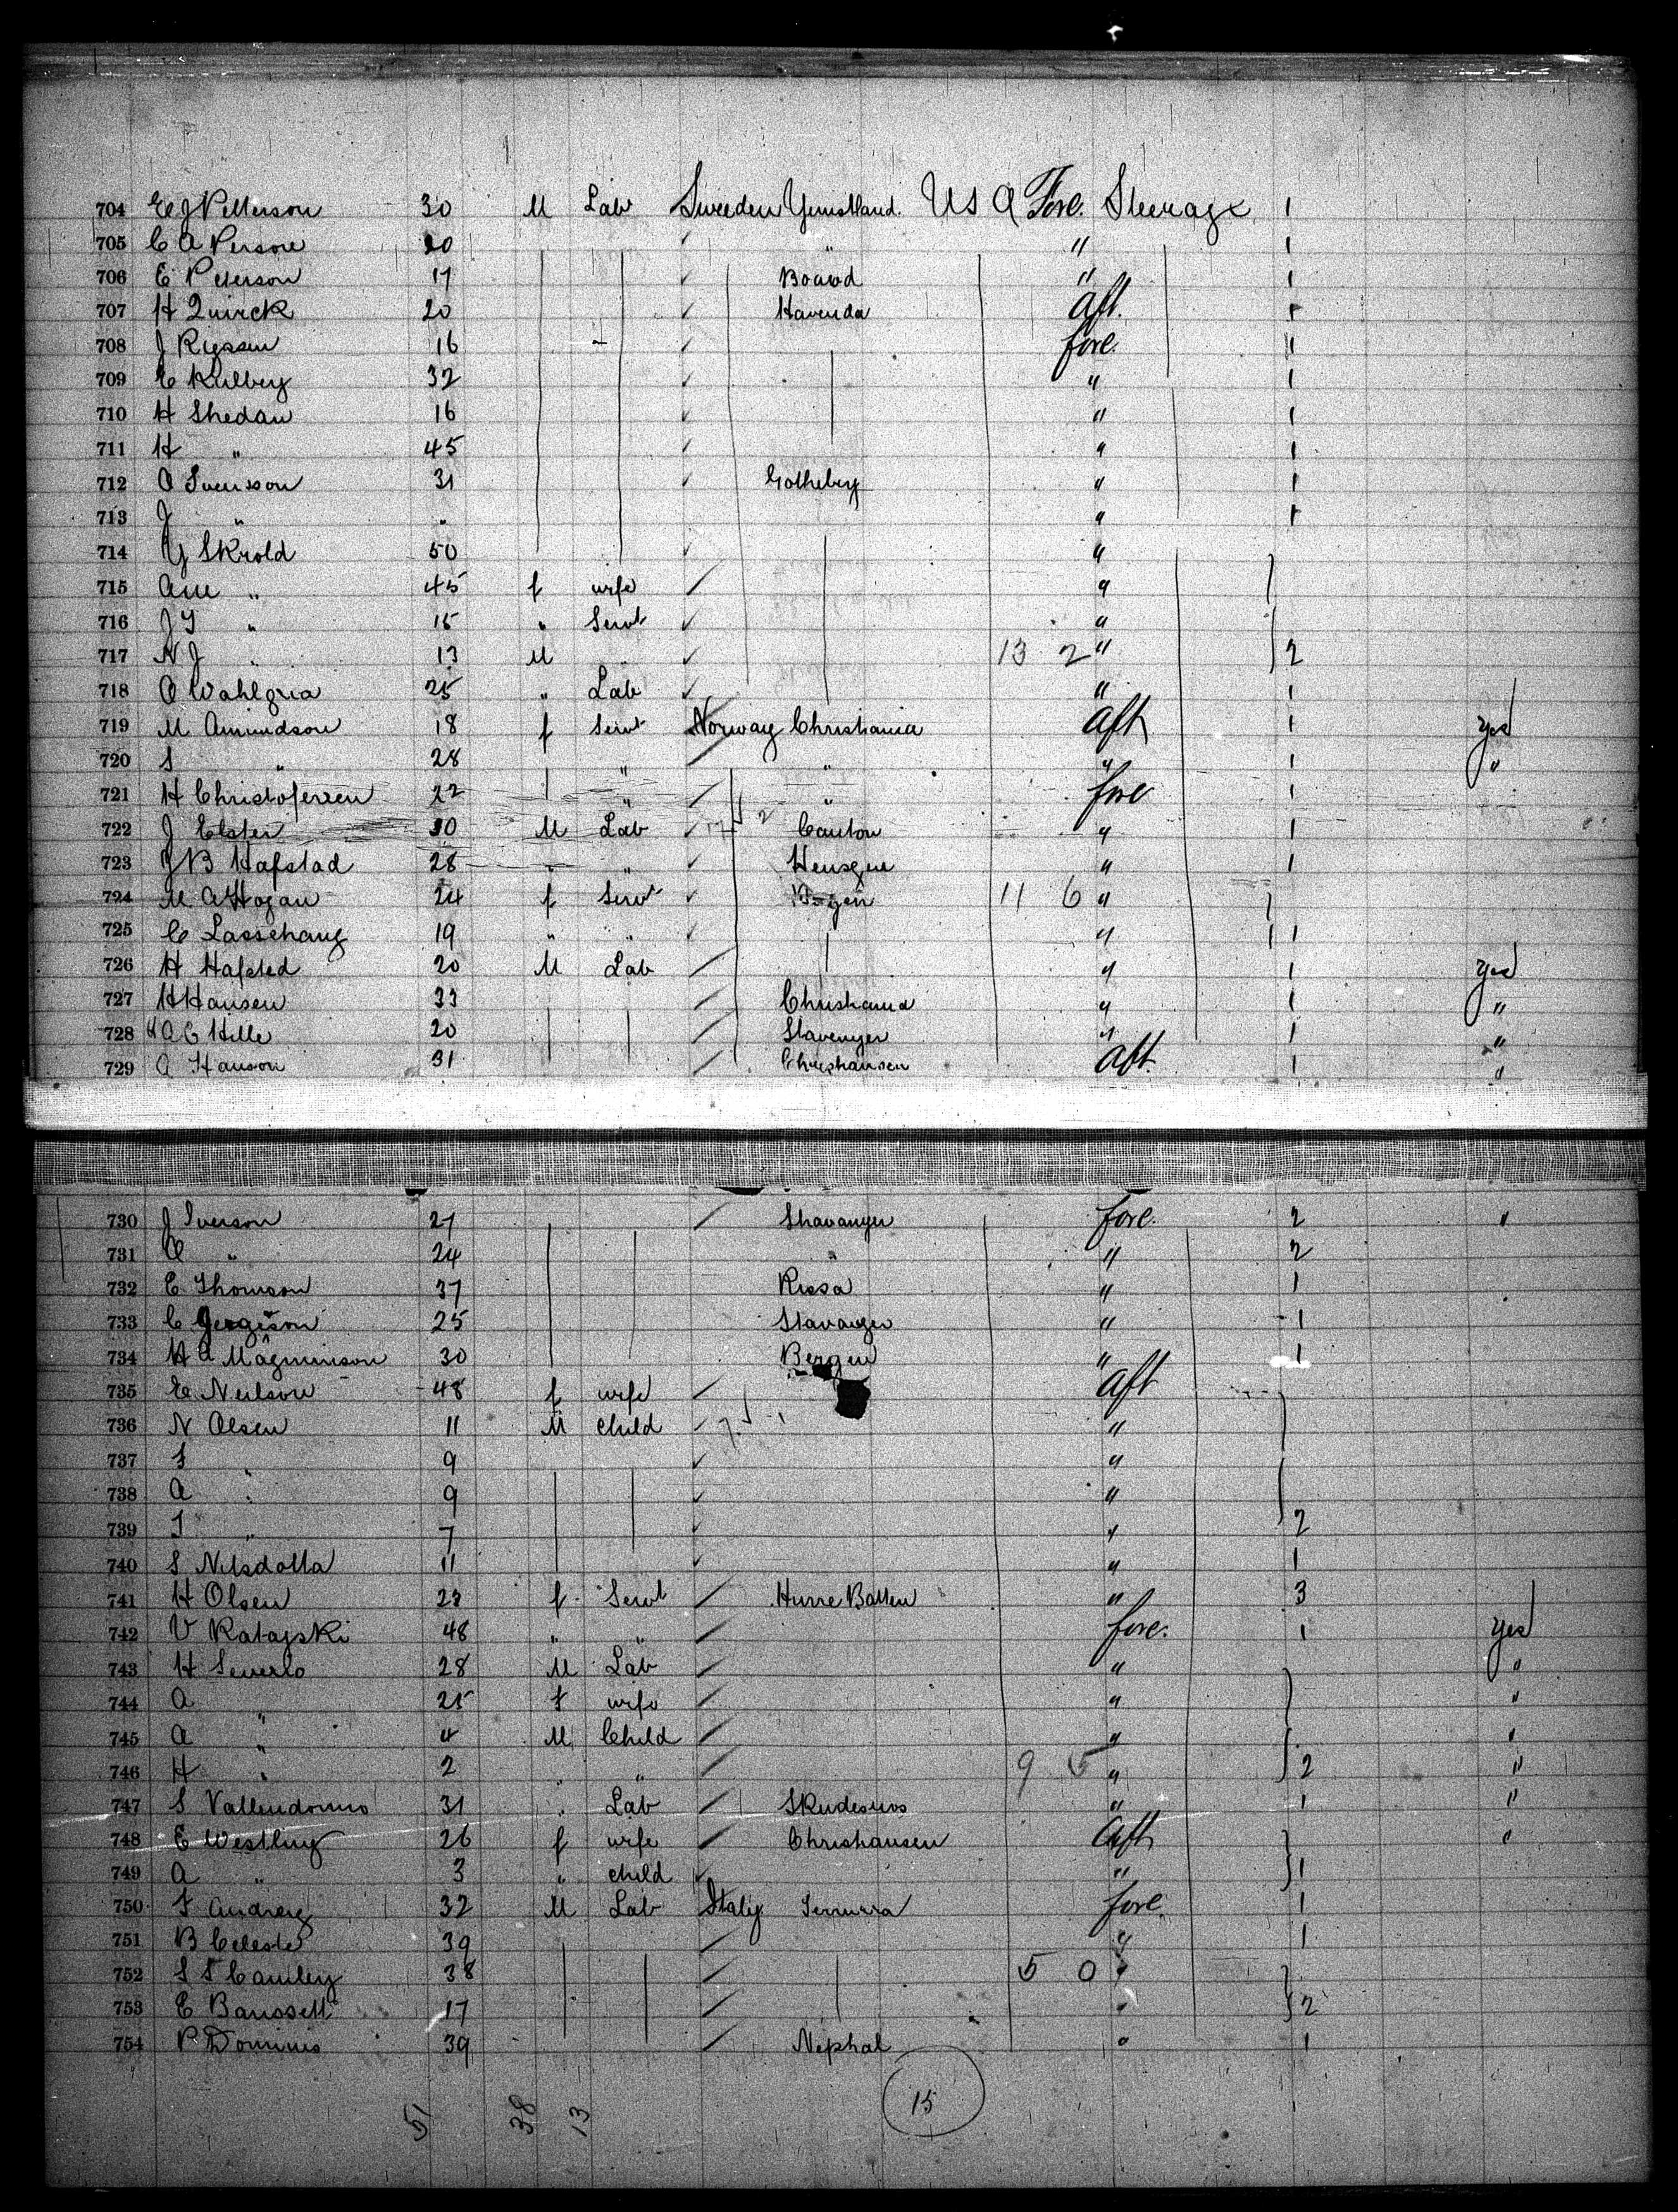 704 E J Petterson 30 M Lab Sweden Yumstland. USA Fore. Steerage 1
705 C A Person 20 " " 1
706 E Peterson 17 " 1
707 H Quirck 20 Havenda Aft. 1
708 J 16 fore. 1
709 E Kulberg 32 " 1
710 H Shedan 16 " 1
711 H " 45 " 1
712 O Svensson 31 Gotheberg " 1
713 J " " " 1
714 Skrold 50 "
715 " 45 f wife "
716 " 15 " Servt "
717 N J " 13 M 13 2 " 2
718 O 25 " Lab " 1
719 M Amundson 18 f Servt Norway Christiania Aft 1 yes
720 S " 28 " " " 1 "
721 H Christofersen 22 " " fore 1
722 J Elster 30 M Lab Canton " 1
723 J B Hafstad 28 " " " 1
724 M A Hogan 24 f Servt 11 6 "
725 C 19 " " " 1
726 H Hafsted 20 M Lab " 1 yes
727 H Hansen 33 Christiania " 1 "
728 A C Hille 20 Stavenger " 1 "
729 A Hanson 31 Christiansen Aft. 1 "
730 J Iverson 27 Shavanger fore. 2 "
731 O " 24 " " 2
732 E Thomson 37 Rissa " 1
733 C 25 Stavanger " 1
734 H A Magnunson 30 Bergen " 1
735 E Neilson 48 f wife Aft
736 N Olsen 11 M child "
737 S " 9 "
738 A " 9 "
739 " 7 " 2
740 S Nilsdotta 11 " 1
741 H Olsen 23 f Servt " 3
742 V Ratajski 48 " " fore. 1 yes
743 H Severlo 28 M Lab " "
744 A " 25 f wife " "
745 A " 4 M Child " "
746 H " 2 " " 9 5 " 2 "
747 S 31 " Lab Skudesnos " 1 "
748 E Westling 26 f wife Christiansen Aft "
749 A " 3 " child " 1
750 32 M Lab Italy fore. 1
751 B Celeste 39 " 1
752 38 5 0 "
753 E 17 " 2
754 P Dominis 39 Nephal " 1
51 38 13 15